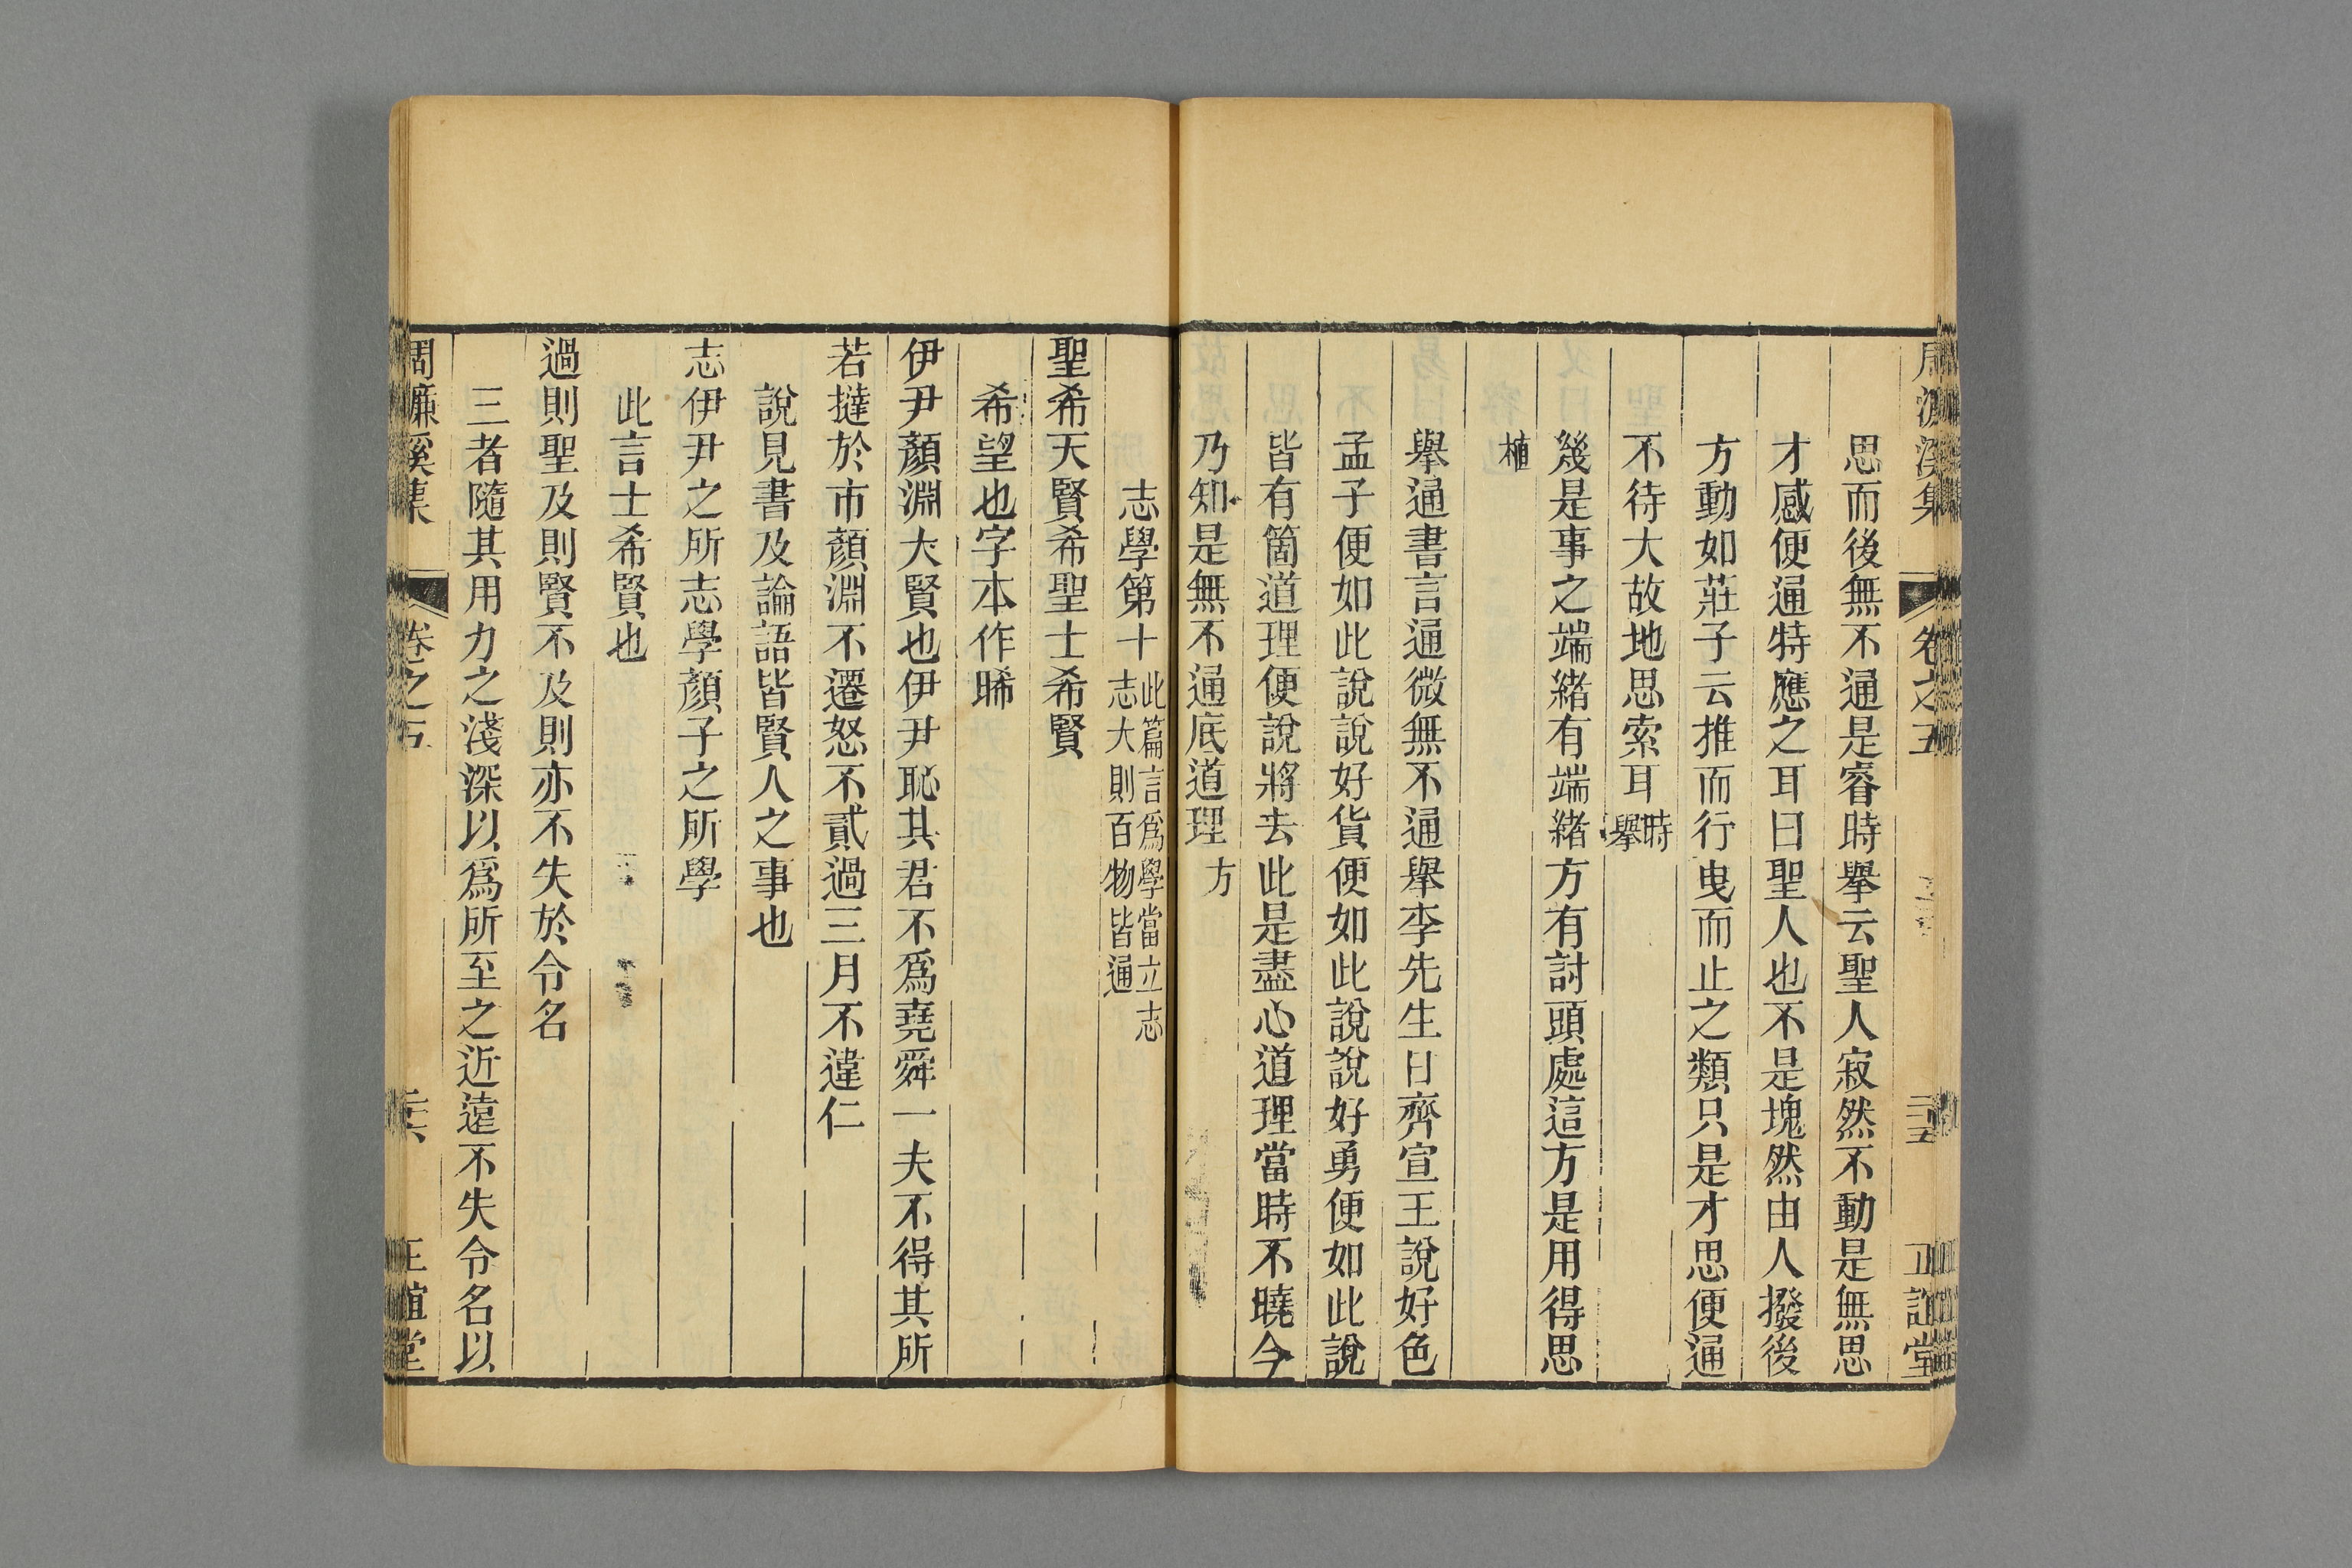 思而後無不通是睿時舉云聖人寂然不動是無思
才感便通特應之耳曰聖人也不是塊然由人撥後
方動如莊子云推而行曳而止之類只是才思便通
不待大故地思索耳時舉
幾是事之端緒有端緒方有討頭處這方是用得思
植
舉通書言通微無不通舉李先生曰齊宣王說好色
孟子便如此說說好貨便如此說說好勇便如此說
皆有箇道理便說將去此是盡心道理當時不曉今
乃知是無不通底道理方
志學第十此篇言爲學當立志志大則百物皆通
聖希天賢希聖士希賢
希望也字本作睎
伊尹顏淵大賢也伊尹恥其君不爲堯舜一夫不得其所
若撻於市顏淵不遷怒不貳過三月不違仁
說見書及論語皆賢人之事也
志伊尹之所志學顏子之所學
此言士希賢也
過則聖及則賢不及則亦不失於令名
三者隨其用力之淺深以爲所至之近遠不失令名以
周濂溪集 卷之五 二六 正誼堂